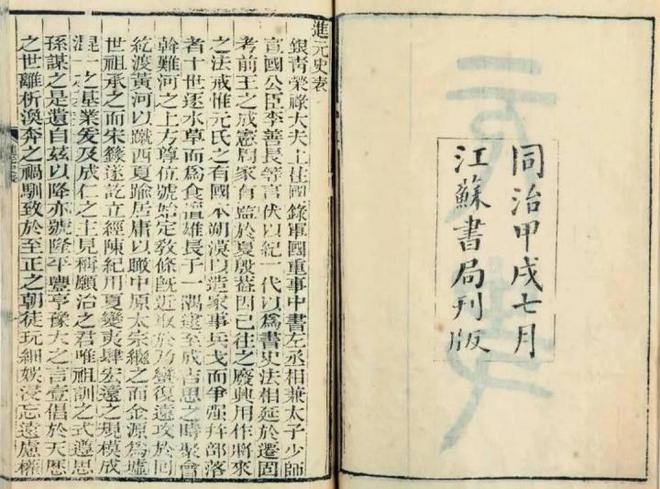 同治甲戌七月
江蘇書局刊版
進元史表
銀青榮祿大夫上柱國錄軍國重事中書左丞相兼太子少師
宣國公臣李善長等言伏以紀一代以爲書史法相延於遷固
考前王之成憲周家有監於夏殷葢因已往之廢興用作將來
之法戒惟元氏之有國本朔漠以造家事兵戈而爭强幷部落
者十世逐水草而爲食擅雄長于一隅逮至成吉思之時聚會
斡難河之上方尊位號始定敎條旣近取於乃蠻復遠攻於囘
紇渡黃河以蹴西夏踰居庸以瞰中原太宗繼之而金源爲墟
世祖承之而宋籙遂訖立經陳紀用夏變夷肆宏遠之規模成
混一之基業爰及成仁之主見稱願治之君唯祖訓之式遵思
孫謀之是遺自茲以降亦號隆平豐亨豫大之言壹倡於天歷
之世離析渙奔之禍馴致於至正之朝徒玩細娛浸忘遠慮權